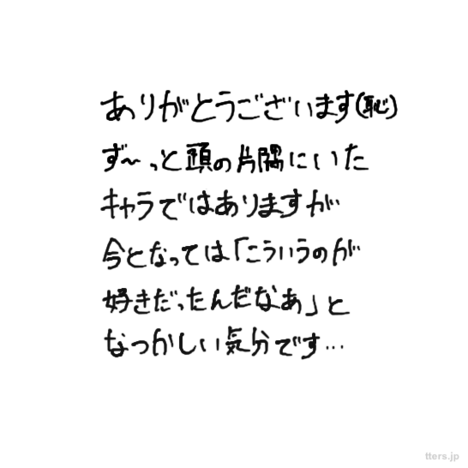 ありがとうございます(恥)
ず〜っと頭の片隅にいた
キャラではありますが
今となっては「こういうのが
好きだったんだなあ」と
なつかしい気分です…
tters.jp